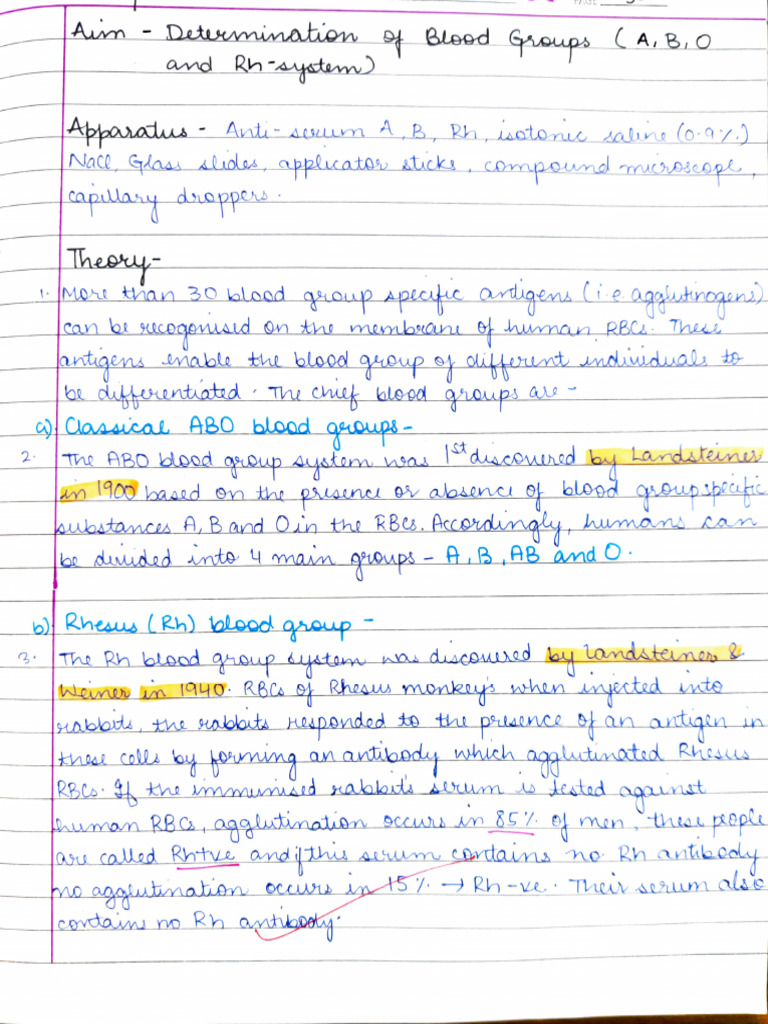 PAGE
Aim - Determination of Blood Groups (A, B, O
and Rh-system)
Apparatus - Anti-serum A, B, Rh, isotonic saline (0.9%)
NaCl, Glass slides, applicator sticks, compound microscope,
capillary droppers.
Theory-
1. More than 30 blood group specific antigens (i.e. agglutinogens)
can be recogonised on the membrane of human RBCs. These
antigens enable the blood group of different individuals to
be differentiated. The chief blood groups are -
a) Classical ABO blood groups-
2. The ABO blood group system was 1st discovered by Landsteiner
in 1900 based on the presence or absence of blood group specific
substances A, B and O in the RBCs. Accordingly, humans can
be divided into 4 main groups - A, B, AB and O.
b) Rhesus (Rh) blood group -
3. The Rh blood group system was discovered by Landsteiner &
Weiner in 1940. RBCs of Rhesus monkeys when injected into
rabbits, the rabbits responded to the presence of an antigen in
these cells by forming an antibody which agglutinated Rhesus
RBCs. If the immunised rabbits serum is tested against
human RBCs, agglutination occurs in 85% of men, these people
are called Rh+ve and if this serum contains no Rh antibody
no agglutination occurs in 15% → Rh-ve. Their serum also
contains no Rh antibody.